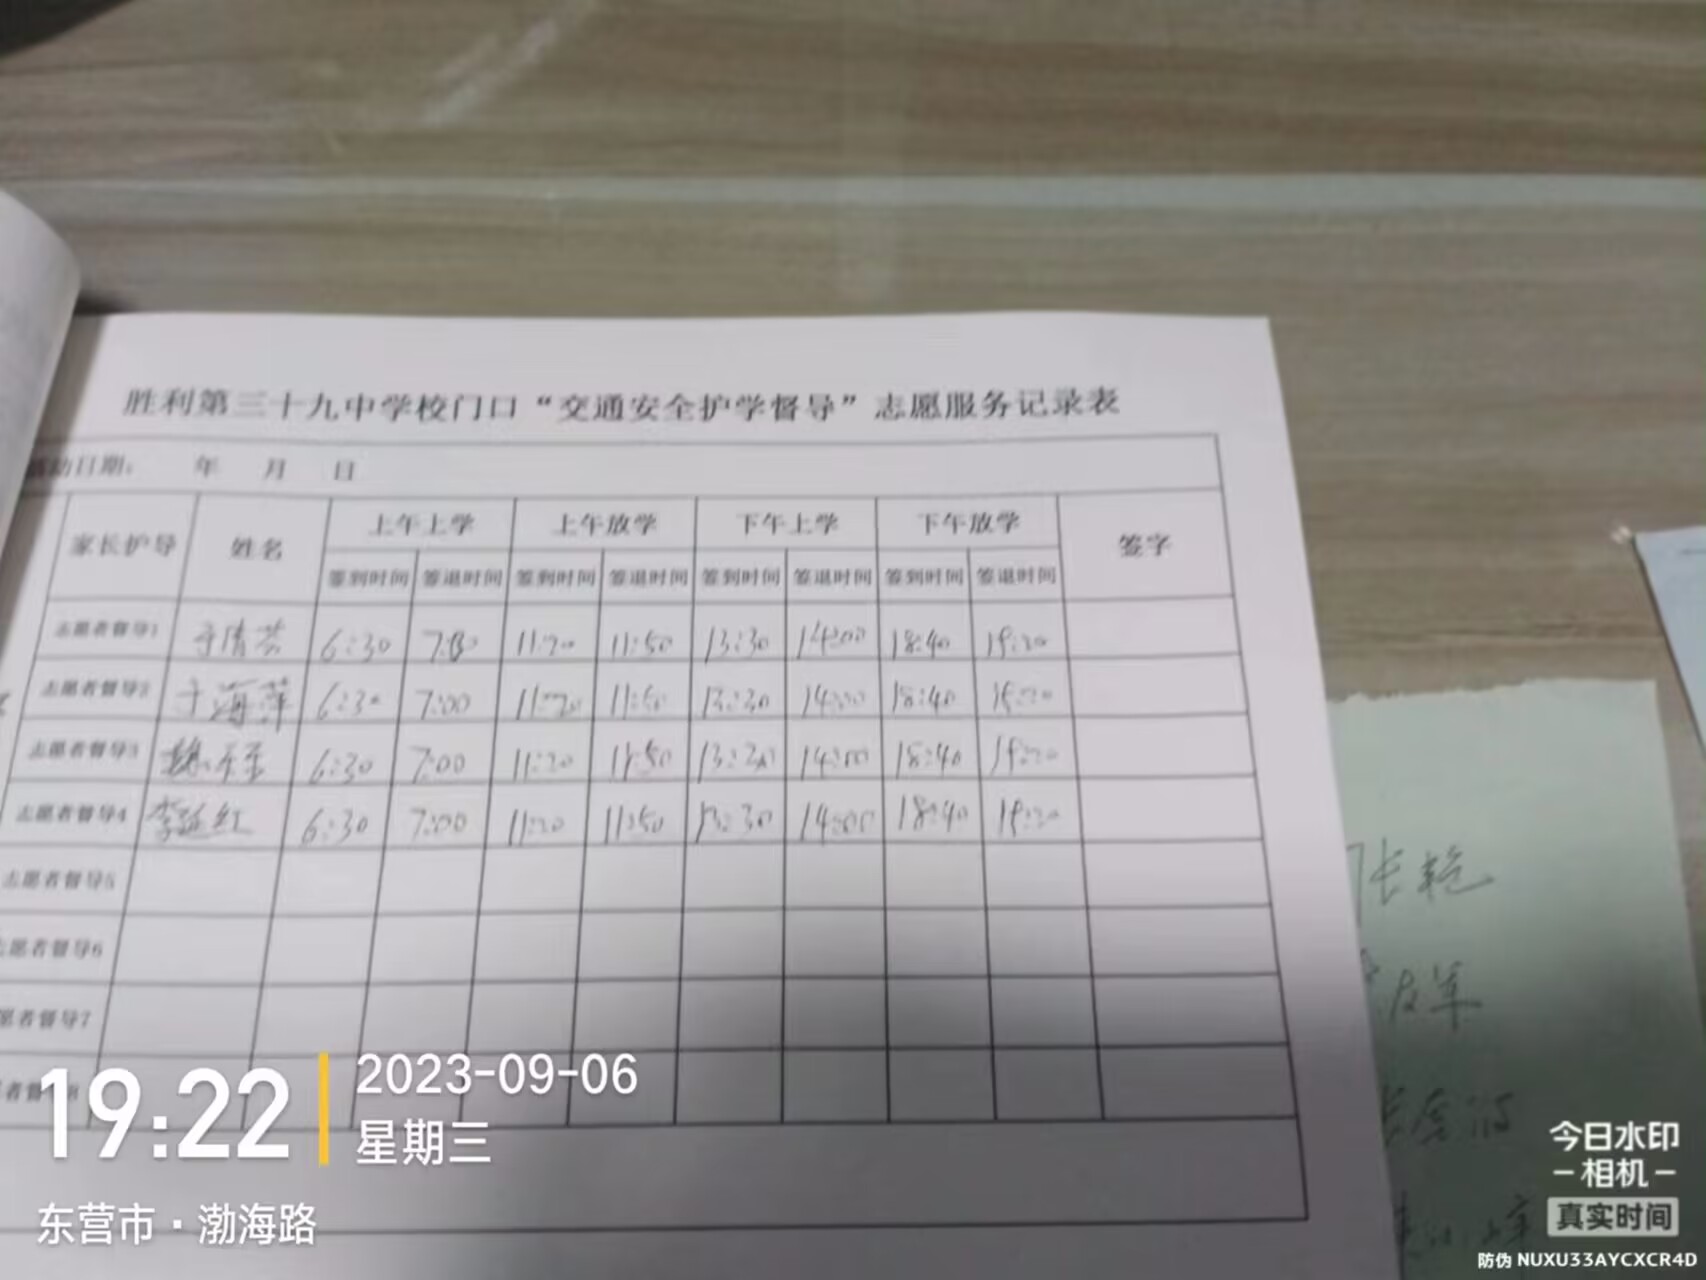 胜利第三十九中学校门口“交通安全护学督导”志愿服务记录表
活动日期： 年 月 日
家长护导 姓名 上午上学 上午放学 下午上学 下午放学 签字
签到时间 签退时间 签到时间 签退时间 签到时间 签退时间 签到时间 签退时间
志愿者督导1 6:30 11:20 11:50 13:30 14:00 18:40 19:20
志愿者督导2 于海萍 6:30 7:00 11:20 11:50 13:30 14:00 18:40 19:20
志愿者督导3 6:30 7:00 11:20 11:50 13:30 14:00 18:40 19:20
志愿者督导4 李延红 6:30 7:00 11:20 11:50 13:30 14:00 18:40 19:20
志愿者督导5
志愿者督导6
愿者督导7
张艳
19:22
2023-09-06
星期三
东营市·渤海路
今日水印
-相机-
真实时间
防伪 NUXU33AYCXCR4D